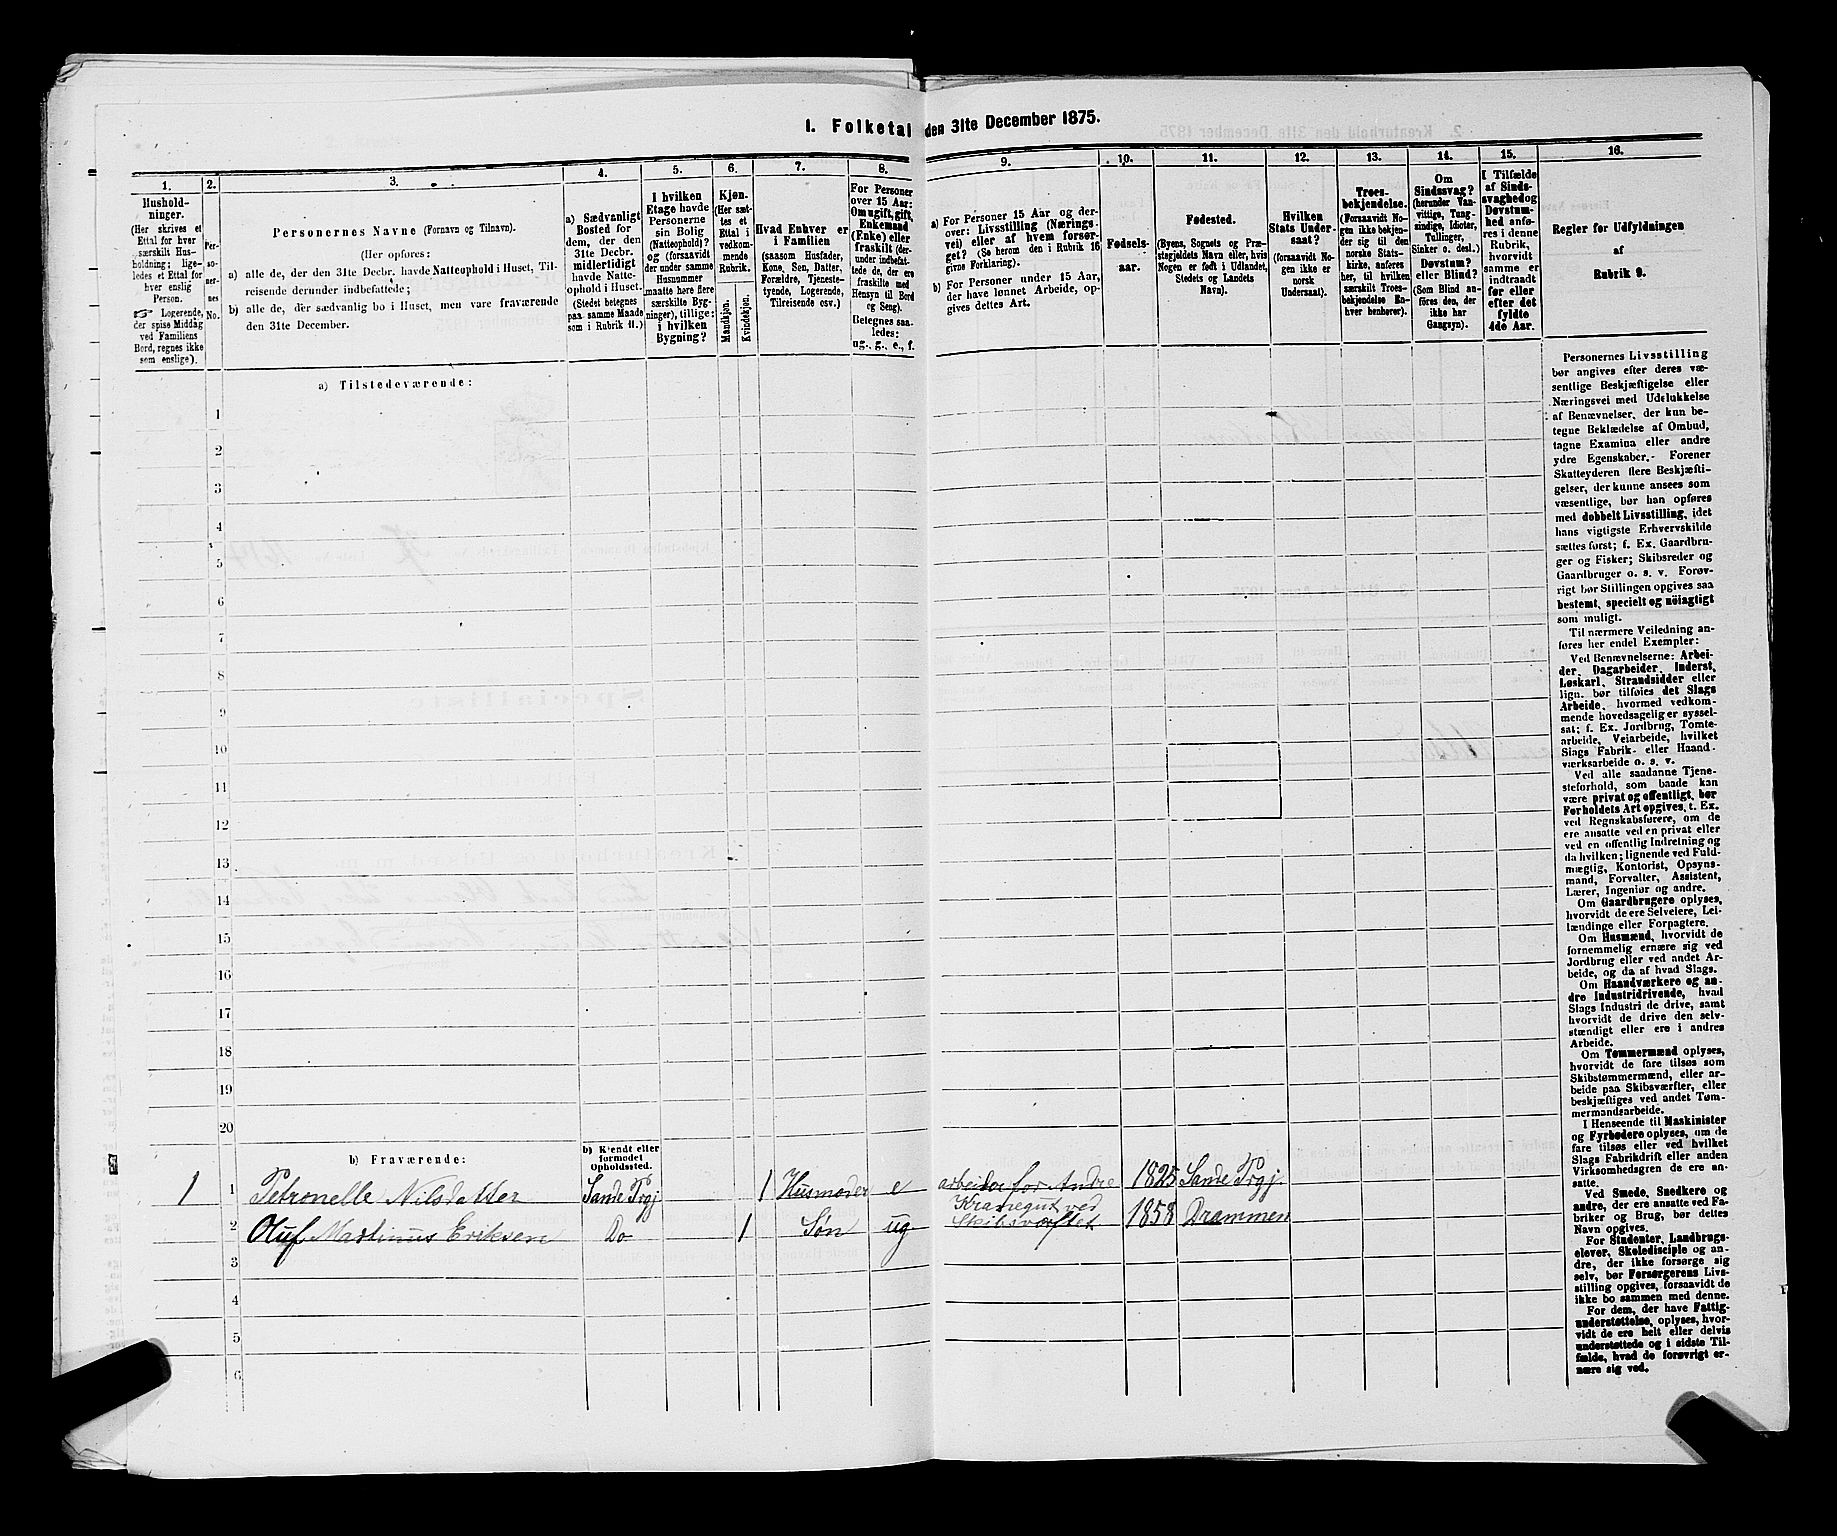 1. Folketal den 31te December 1875.
1. 2. 3. 4. 5. 6. 7. 8. 9. 10. 11. 12. 13. 14. 15. 16.
Hushold-
ninger.
(Her skrives et
Ettal for hver
særskilt Hus-
holdning; lige-
ledes et Ettal for
hver enslig
Person.
☞ Logerende,
der spise Middag
ved Familiens
Bord, regnes ikke
som enslige).
Per-
so-
ner-
nes
No.
Personernes Navne (Fornavn og Tilnavn).
(Her opføres:
a) alle de, der den 31te Decbr. havde Natteophold i Huset, Til-
reisende derunder indbefattede;
b) alle de, der sædvanlig bo i Huset, men vare fraværende
den 31te December.
a) Sædvanligt
Bosted for
dem, der den
31te Decbr.
midlertidigt
havde Natte-
ophold i Huset.
(Stedet betegnes
paa samme Maade
som i Rubrik 11.)
I hvilken
Etage havde
Personerne
sin Bolig
(Natteophold)?
og (forsaavidt
der under samme
Husnummer
maatte høre flere
særskilte Byg-
ninger), tillige:
i hvilken
Bygning?
Kjøn.
(Her sæt-
tes et
Ettal i
vedkom-
mende
Rubrik.
Mandkjøn.
Kvindekjøn.
Hvad Enhver er
i Familien
(saasom Husfader,
Kone, Søn, Datter,
Forældre, Tjeneste-
tyende, Logerende,
Tilreisende osv.)
For Personer
over 15 Aar:
Om ugift, gift,
Enkemand
(Enke) eller
fraskilt (der-
under indbefat-
tede de, der ere
fraskilte med
Hensyn til Bord
og Seng).
Betegnes saa-
ledes:
ug., g., e., f.
a) For Personer 15 Aar og der-
over: Livsstilling (Nærings-
vei) eller af hvem forsør-
get? (Se herom den i Rubrik 16
givne Forklaring).
b) For Personer under 15 Aar,
der have lønnet Arbeide, op-
gives dettes Art.
Fødsels-
aar.
Fødested.
(Byens, Sognets og Præ-
stegjeldets Navn eller, hvis
Nogen er født i Udlandet,
Stedets og Landets
Navn).
Hvilken
Stats Under-
saat?
(forsaavidt No-
gen ikke er
norsk
Undersaat).
Troes-
bekjendelse.
(Forsaavidt No-
gen ikke bekjen-
der sig til den
norske Stats-
kirke, anføres
her, til hvilken
særskilt Troes-
bekjendelse En-
hver henhører).
Om
Sindssvag?
(herunder Van-
vittige, Tung-
sindige, Idioter,
Tullinger,
Sinker o. desl.)
Døvstum?
eller Blind?
(Som Blind an-
føres den, der
ikke har
Gangsyn).
I Tilfælde
af Sinds-
svaghed og
Døvstum-
hed anfø-
res i denne
Rubrik,
hvorvidt
samme er
indtraadt
før eller
efter det
fyldte
4de Aar.
Regler for Udfyldningen
af
Rubrik 9.
a) Tilstedeværende:
1
2
3
4
5
6
7
8
9
10
11
12
13
14
15
16
17
18
19
20
b) Fraværende:
b) Kjendt eller
formodet
Opholdssted.
1 1 Petronelle Nilsdatter Sande Prgj 1 Husmoder e arbeider for Andre 1825 Sande Prgj.
2 Oluf Martinus Eriksen Do 1 Søn ug Skibsværftet 1858 Drammen
3
4
5
6
Personernes Livsstilling
bør angives efter deres væ-
sentlige Beskjæftigelse eller
Næringsvei med Udelukkelse
af Benævnelser, der kun be-
tegne Beklædelse af Ombud,
tagne Examina eller andre
ydre Egenskaber. Forener
Skatteyderen flere Beskjæfti-
gelser, der kunne ansees som
væsentlige, bør han opføres
med dobbelt Livsstilling, idet
hans vigtigste Erhvervskilde
sættes først; f. Ex. Gaardbru-
ger og Fisker; Skibsreder og
Gaardbruger o. s. v. Forøv-
rigt bør Stillingen opgives saa
bestemt, specielt og nöiagtigt
som muligt.
Til nærmere Veiledning an-
føres her endel Exempler:
Ved Benævnelserne: Arbei-
der, Dagarbeider, Inderst,
Løskarl, Strandsidder eller
lign. bør tilføies det Slags
Arbeide, hvormed vedkom-
mende hovedsagelig er syssel-
sat; f. Ex. Jordbrug, Tomte-
arbeide, Veiarbeide, hvilket
Slags Fabrik- eller Haand-
værksarbeide o. s. v.
Ved alle saadanne Tjene-
steforhold, som baade kan
være privat og offentligt, bør
Forholdets Art opgives, t. Ex.
ved Regnskabsførere, om de
ere ansatte ved en privat eller
ved en offentlig Indretning og
da hvilken; lignende ved Fuld-
mægtig, Kontorist, Opsyns-
mand, Forvalter, Assistent,
Lærer, Ingeniør og andre.
Om Gaardbrugere oplyses,
hvorvidt de ere Selveiere, Lei-
lændinge eller Forpagtere.
Om Husmænd, hvorvidt de
fornemmelig ernære sig ved
Jordbrug eller ved andet Ar-
beide, og da af hvad Slags.
Om Haandværkere og an-
dre Industridrivende, hvad
Slags Industri de drive, samt
hvorvidt de drive den selv-
stændigt eller ere i andres
Arbeide.
Om Tømmermænd oplyses,
hvorvidt de fare tilsøs som
Skibstømmermænd, eller ar-
beide paa Skibsværfter, eller
beskjæftiges ved andet Tøm-
mermandsarbeide.
I Henseende til Maskinister
og Fyrbødere oplyses, om de
fare tilsøs eller ved hvilket
Slags Fabrikdrift eller anden
Virksomhedsgren de ere an-
satte.
Ved Smede, Snedkere og
andre, der ere ansatte ved Fa-
briker og Brug, bør dettes
Navn opgives.
For Studenter, Landbrugs-
elever, Skoledisciple og an-
dre, der ikke forsørge sig
selv, bør Forsørgerens Livs-
stilling opgives, forsaavidt de
ikke bo sammen med denne.
For dem, der have Fattig-
understøttelse, oplyses, hvor-
vidt de ere helt eller delvis
understøttede og i sidste Til-
fælde, hvad de forøvrigt er-
nære sig ved.